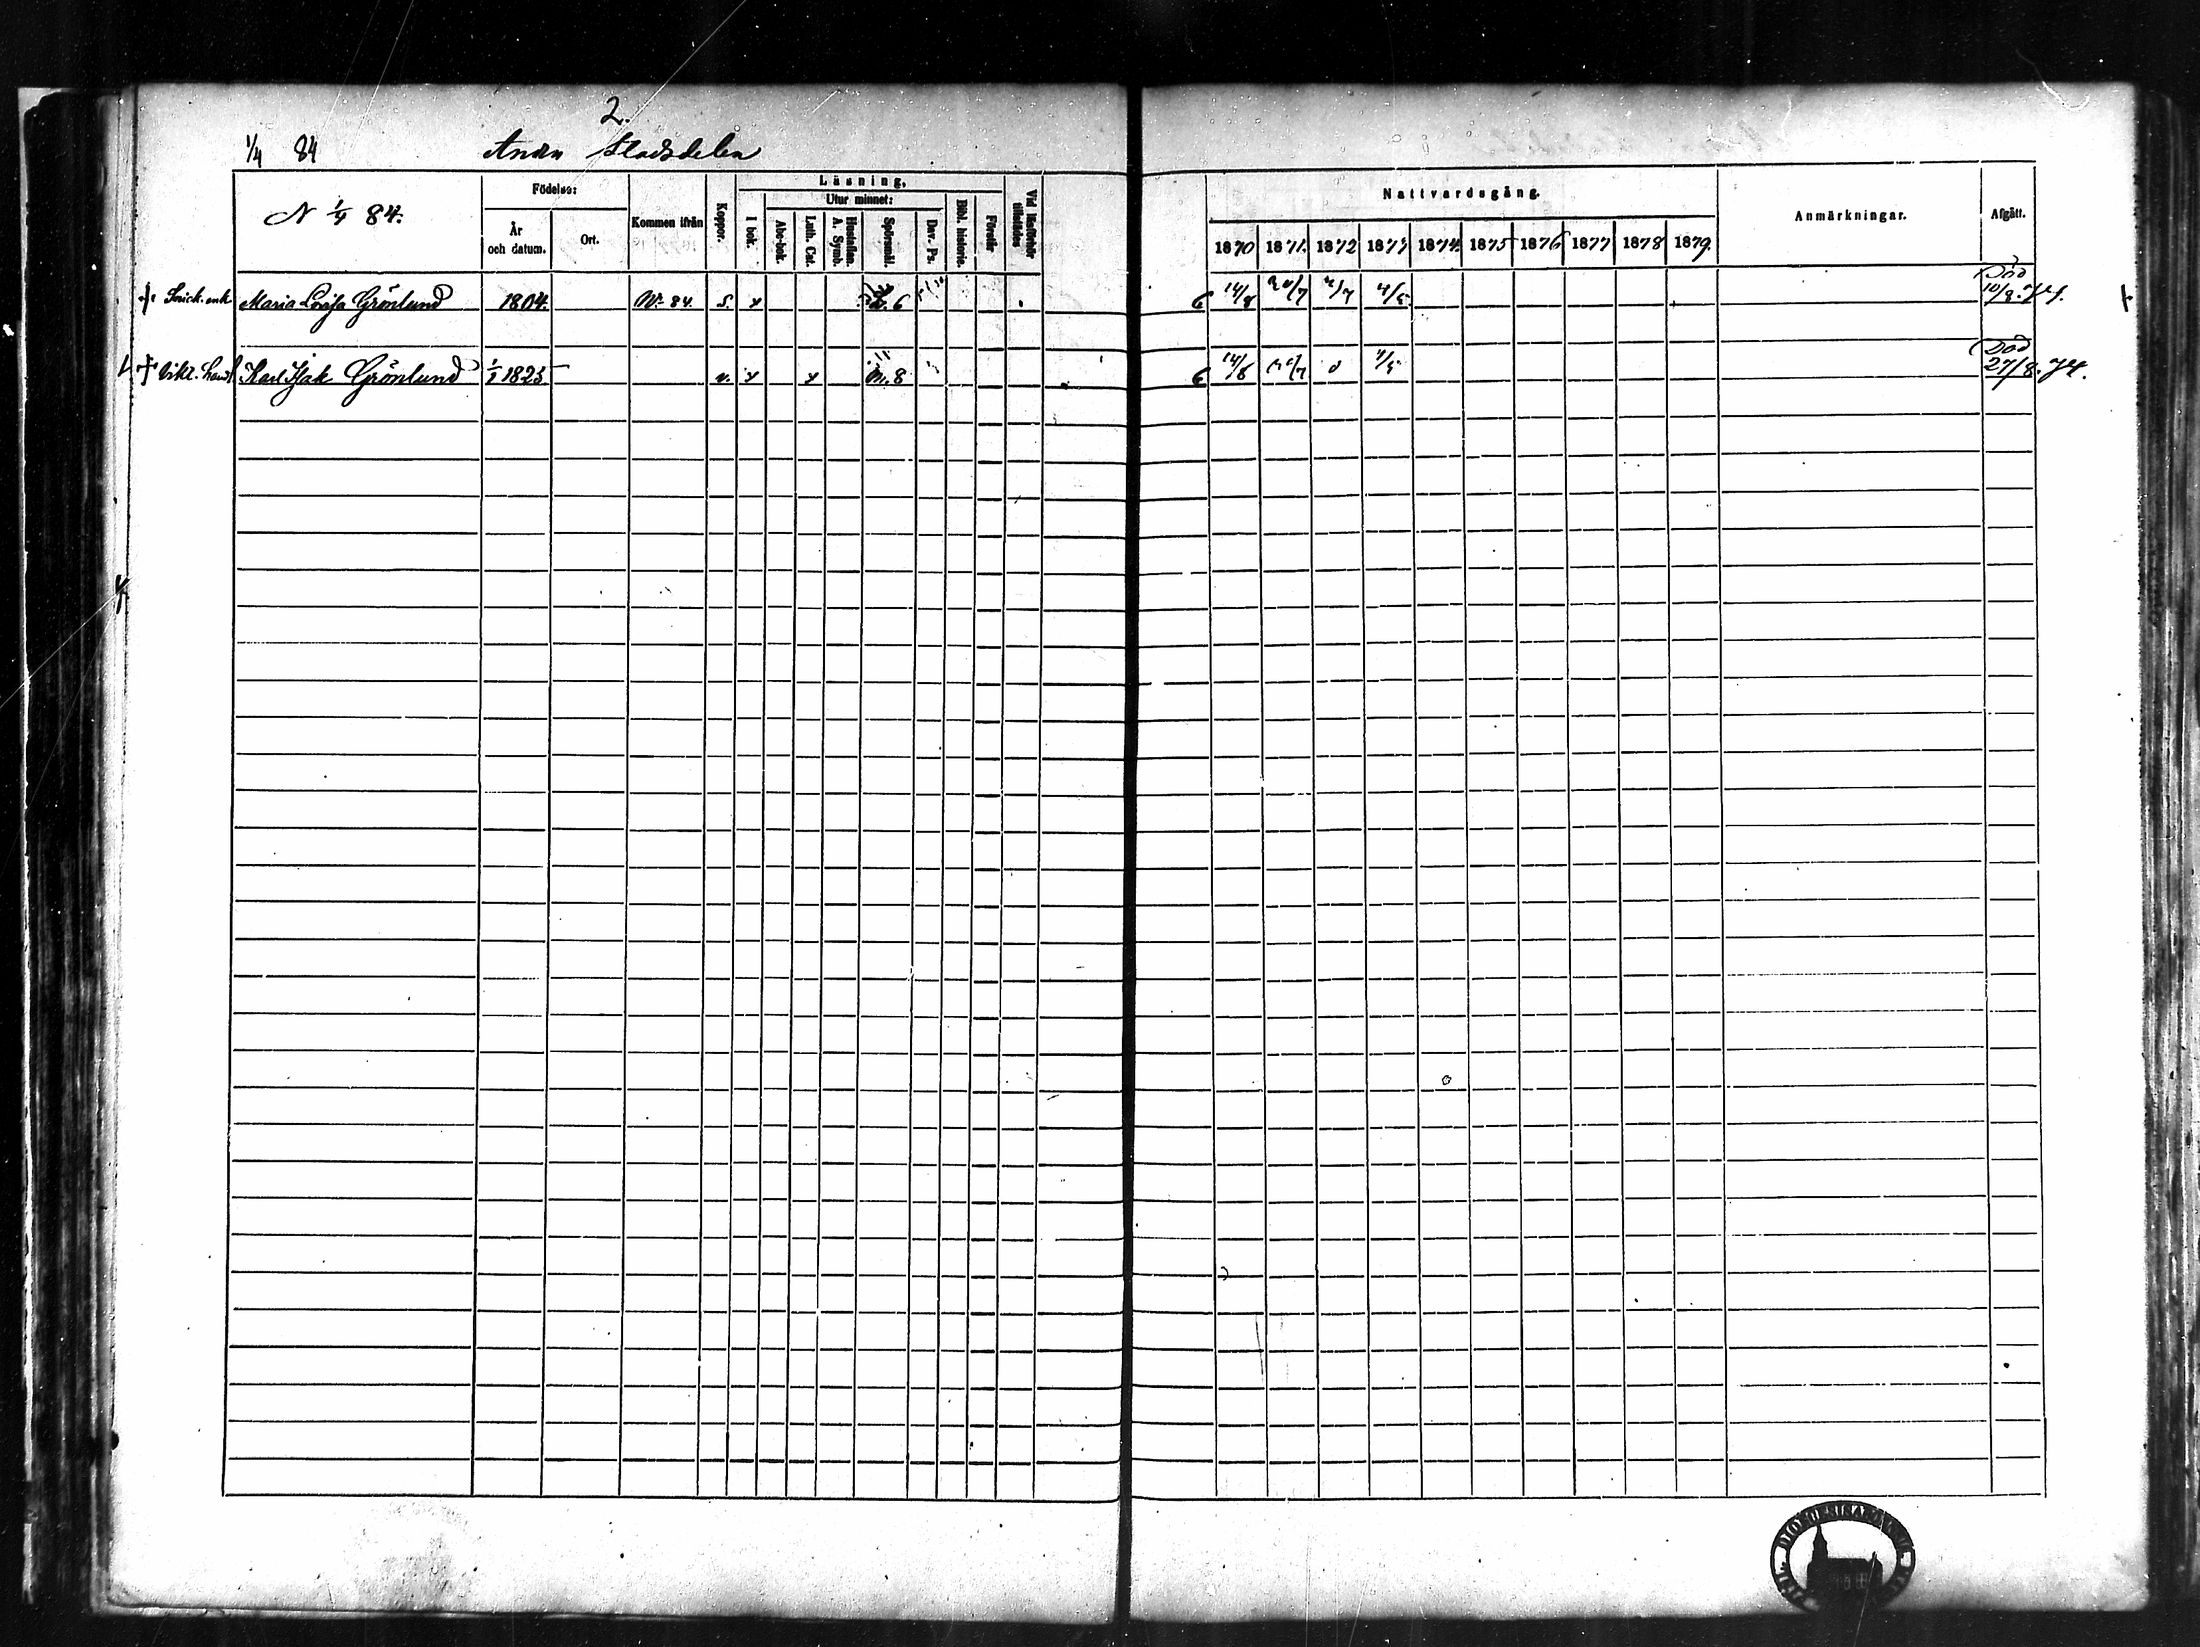 2.
1/4 84 Andra Stadsdelen
Födelse: Läsning, Nattvardsgång.
N 1/4 84. År och datum. Ort. Kommen ifrån Koppor. I bok. Utur minnet: Abc-bok. Luth. Cat. Hustaflan. A. Symb. Spörsmål. Dav. Ps. Bibl. historie. Förstår Vid läsförhör tillstädes 1870 1871. 1872 1873 1874. 1875 1876 1877 1878 1879. Anmärkningar. Afgått.
Död
† Snick. enk Maria Lovisa Grönlund 1804. Nr. 84 s. y 6 6 14/8 20/7 4/5 10/8. 74.
Död
† Karl Isak Grönlund 1/1 1825 v. y y 8 6 14/8 4/5 27/8. 74.